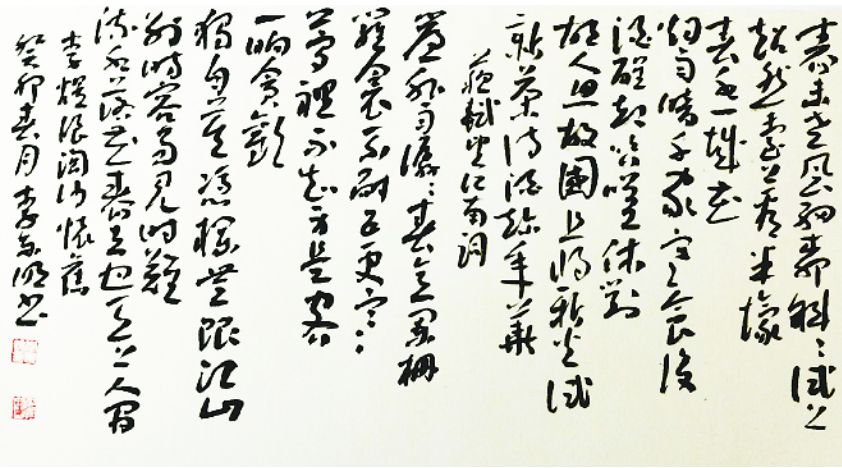 春未老風細柳斜〻試上
超然臺上看半壕
春水一城花
烟雨暗千家寒食後
酒醒却咨嗟休對
故人思故國且將新火試
新茶詩酒趁年華
蘇軾望江南詞
簾外雨潺〻春意闌珊
羅衾不耐五更寒
夢裡不知身是客
一晌貪歡
獨自莫憑欄無限江山
別時容易見時難
流水落花春去也天上人間
李煜浪淘沙懷舊
癸卯春月李明書